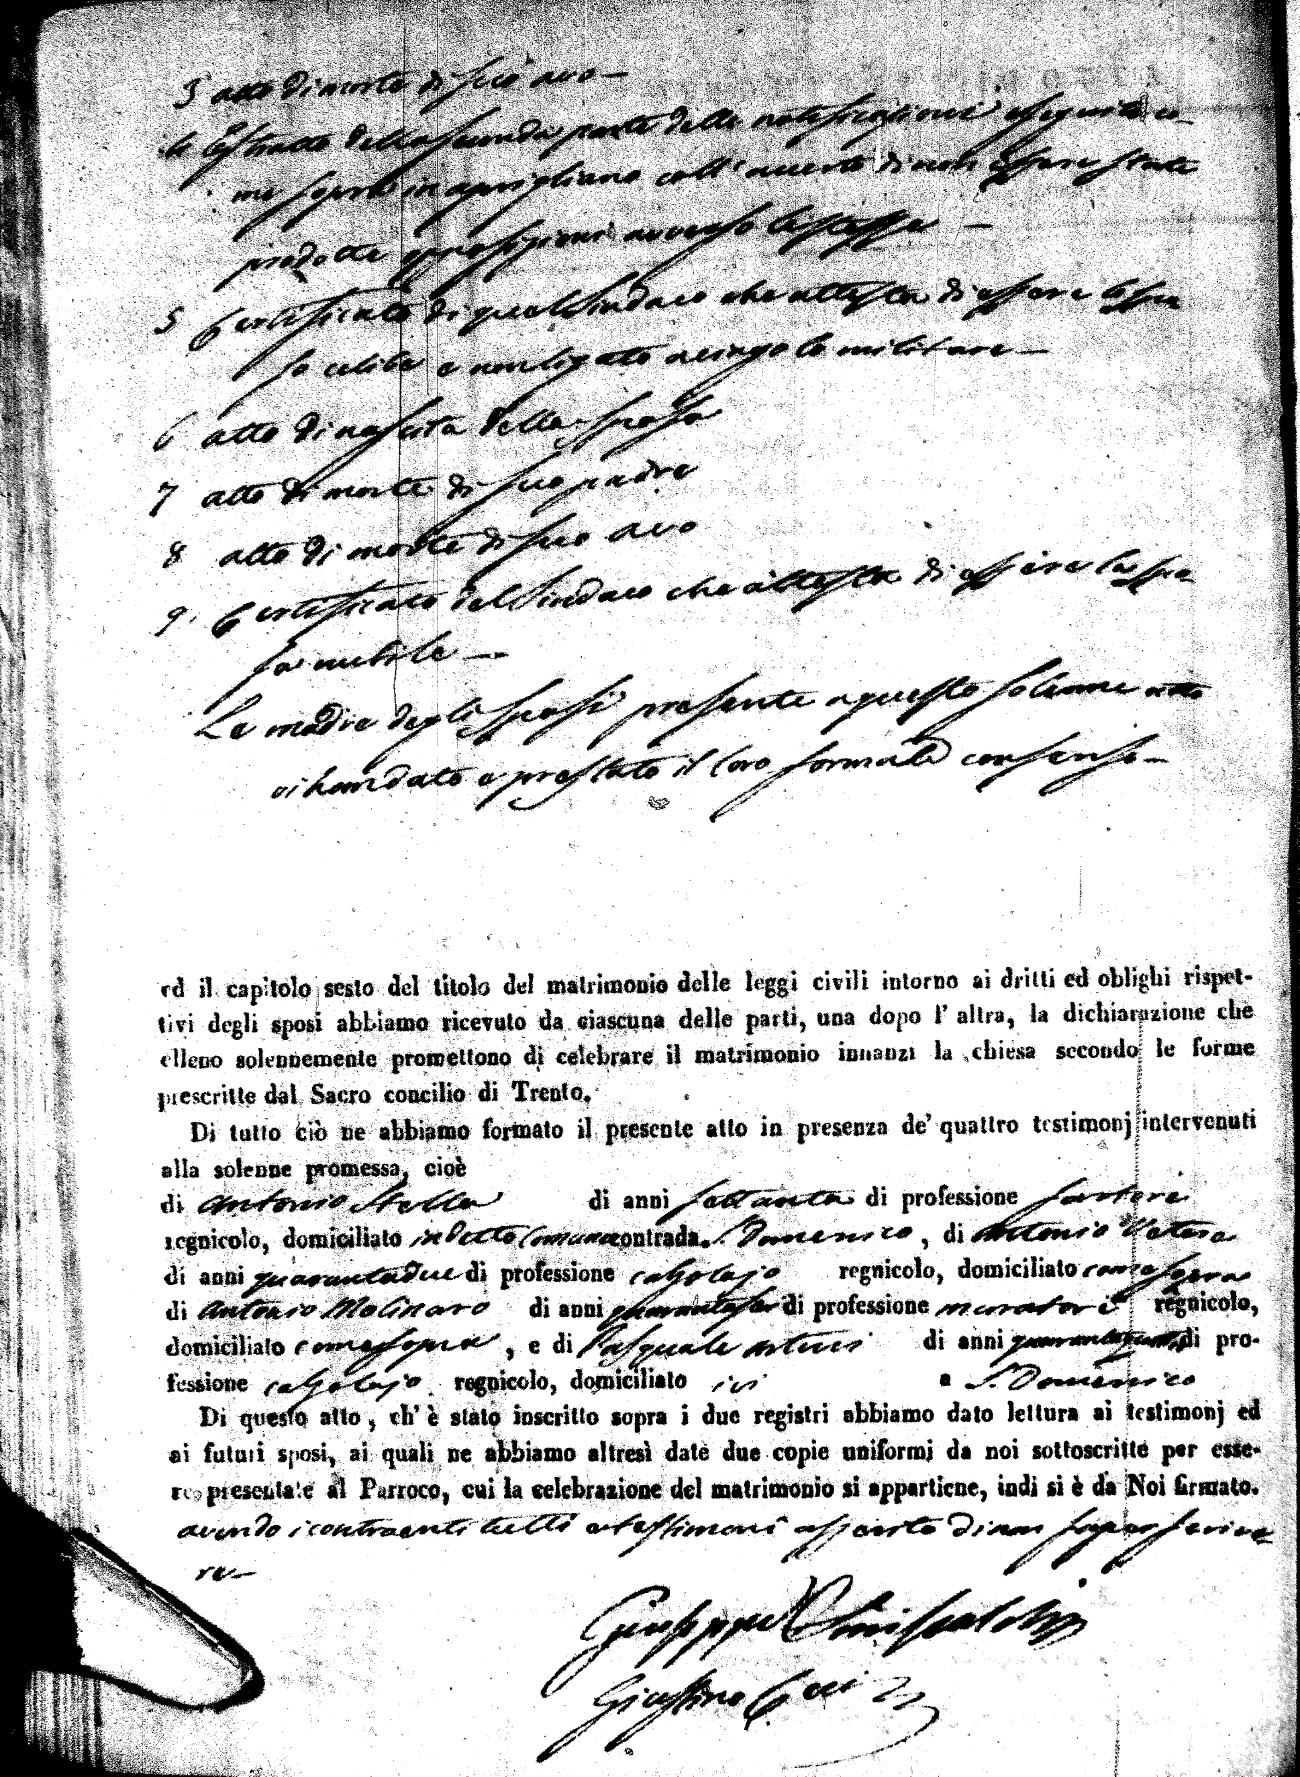 3 atto di morte di suo avo —
4 Estratto della seconda parte delle notificazioni eseguite co-
me sopra in aprigliano coll'accerto di non essere state
prodotte opposizioni avverso le stesse —
5 Certificato di quel Sindaco che attesta di essere lo spo
so celibe e non ligato a cingolo militare —
6 atto di nascita della sposa
7 atto di morte di suo padre
8 atto di morte di suo avo
9 Certificato del Sindaco che attesta di essere la spo-
sa nubile —
Le madre degli sposi presente a questo solenne atto
ci han dato e prestato il loro formale consenso —
ed il capitolo sesto del titolo del matrimonio delle leggi civili intorno ai dritti ed oblighi rispet-
tivi degli sposi abbiamo ricevuto da ciascuna delle parti, una dopo l' altra, la dichiarazione che
elleno solennemente promettono di celebrare il matrimonio innanzi la chiesa secondo le forme
prescritte dal Sacro concilio di Trento.
Di tutto ciò ne abbiamo formato il presente atto in presenza de' quattro testimonj intervenuti
alla solenne promessa, cioè
di Antonio Stella di anni settanta di professione sartore
regnicolo, domiciliato in detto Comune contrada S. Domenico, di Antonio
di anni quarantadue di professione calzolajo regnicolo, domiciliato come sopra
di Antonio Molinaro di anni quarantasei di professione muratore regnicolo,
domiciliato come sopra, e di Pasquale Arturi di anni di pro-
fessione calzolajo regnicolo, domiciliato ivi a S. Domenico
Di questo atto, ch' è stato inscritto sopra i due registri abbiamo dato lettura ai testimonj ed
ai futuri sposi, ai quali ne abbiamo altresì date due copie uniformi da noi sottoscritte per esse-
re presentate al Parroco, cui la celebrazione del matrimonio si appartiene, indi si è da Noi firmato.
avendo i contraenti tutti e testimoni asserito di non saper scrive-
re —
Giuseppe
Giustino